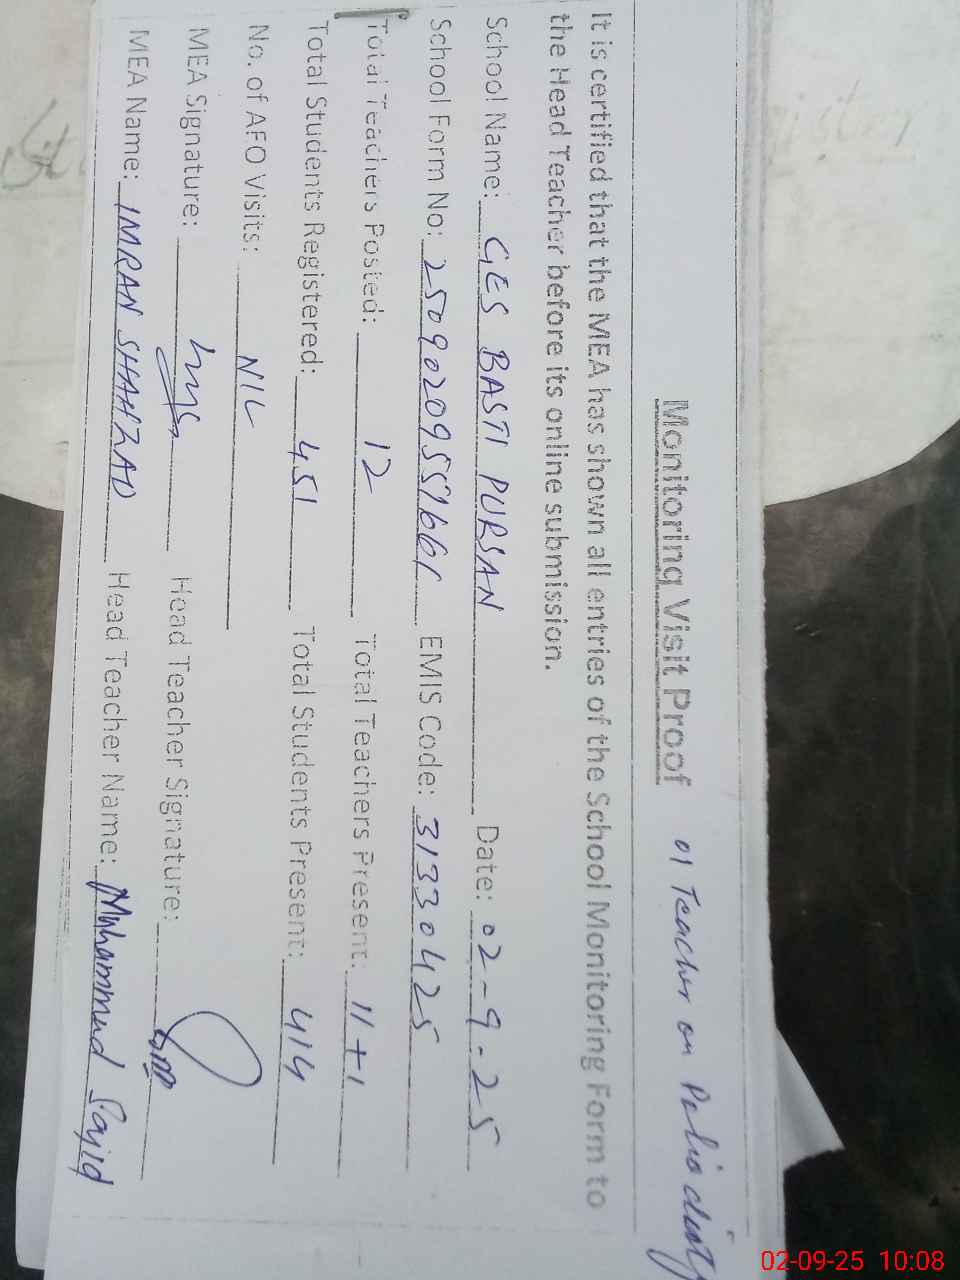 Monitoring Visit Proof 01 Teacher on Polio duty
It is certified that the MEA has shown all entries of the School Monitoring Form to
the Head Teacher before its online submission.
School Name: GES BASTI PURSAN Date: 02-9-25
School Form No: EMIS Code: 31330425
Total Teachers Posted: 12 Total Teachers Present: 11+1
Total Students Registered: 451 Total Students Present: 414
No. of AEO Visits: NIL
MEA Signature: Head Teacher Signature:
MEA Name: IMRAN SHAHZAD Head Teacher Name: Muhammad Sajid
02-09-25 10:08